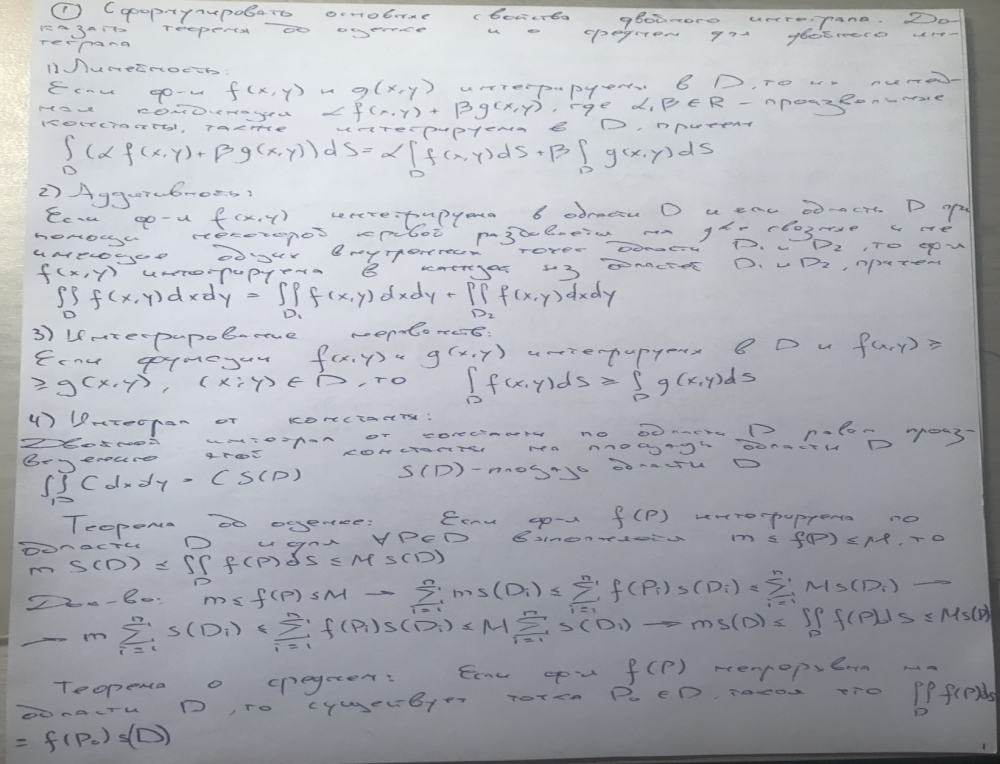 ① Сформулировать основные свойства двойного интеграла. До-
казать теоремы об оценке и о среднем для двойного ин-
теграла
1) Линейность:
Если ф-и f(x,y) и g(x,y) интегрируемы в D, то их линей-
ная комбинация αf(x,y) + βg(x,y), где α,β∈R – произвольные
константы, также интегрируема в D, причем
∫_D (αf(x,y) + βg(x,y))dS = α∫_D f(x,y)dS + β∫_D g(x,y)dS
2) Аддитивность:
Если ф-и f(x,y) интегрируема в области D и если область D при
помощи некоторой кривой разбивается на две связные и не
имеющие общих внутренних точек области D₁ и D₂, то ф-и
f(x,y) интегрируема в каждой из областей D₁ и D₂, причем
∬_D f(x,y)dxdy = ∬_D₁ f(x,y)dxdy + ∬_D₂ f(x,y)dxdy
3) Интегрирование неравенств:
Если функции f(x,y) и g(x,y) интегрируемы в D и f(x,y) ≥
≥ g(x,y), (x;y)∈D, то ∫_D f(x,y)dS ≥ ∫_D g(x,y)dS
4) Интеграл от константы:
Двойной интеграл от константы по области D равен произ-
ведению этой константы на площадь области D
∬_D Cdxdy = CS(D) S(D) – площадь области D
Теорема об оценке: Если ф-и f(P) интегрируема по
области D и для ∀P∈D выполняется m ≤ f(P) ≤ M, то
m S(D) ≤ ∬_D f(P)dS ≤ M S(D)
Док-во: m ≤ f(P) ≤ M → ∑_{i=1}^{n} ms(Dᵢ) ≤ ∑_{i=1}^{n} f(Pᵢ)s(Dᵢ) ≤ ∑_{i=1}^{n} Ms(Dᵢ) →
→ m ∑_{i=1}^{n} s(Dᵢ) ≤ ∑_{i=1}^{n} f(Pᵢ)s(Dᵢ) ≤ M ∑_{i=1}^{n} s(Dᵢ) → ms(D) ≤ ∬_D f(P)dS ≤ Ms(D)
Теорема о среднем: Если ф-и f(P) непрерывна на
области D, то существует точка P₀∈D, такая что ∬_D f(P)ds
= f(P₀)s(D)
1